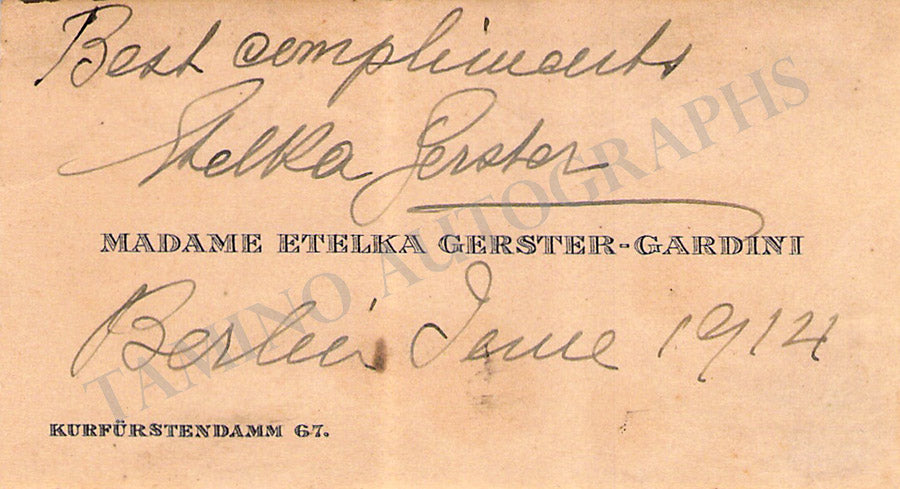 Best compliments
Etelka Gerster
MADAME ETELKA GERSTER-GARDINI
Berlin June 1914
KURFÜRSTENDAMM 67.
TAMINO AUTOGRAPHS